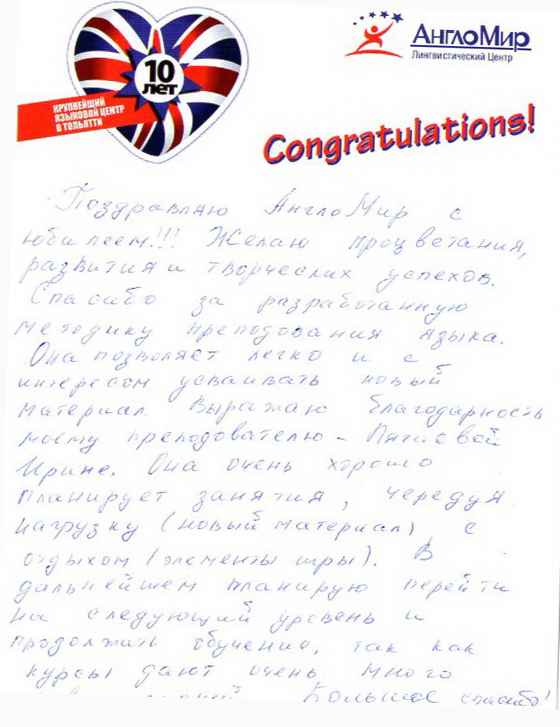 10
лет
КРУПНЕЙШИЙ
ЯЗЫКОВОЙ ЦЕНТР
В ТОЛЬЯТТИ
АнглоМир
Лингвистический Центр
Congratulations!
Поздравляю АнглоМир с
юбилеем!!! Желаю процветания,
развития и творческих успехов.
Спасибо за разработанную
методику преподования языка.
Она позволяет легко и с
интересом усваивать новый
материал. Выражаю благодарность
моему преподователю -
Ирине. Она очень хорошо
планирует занятия, чередуя
нагрузку (новый материал) с
отдыхом (элементы игры). В
дальнейшем планирую перейти
на следующий уровень и
продолжать обучение, так как
курсы дают очень много
Большое спасибо!